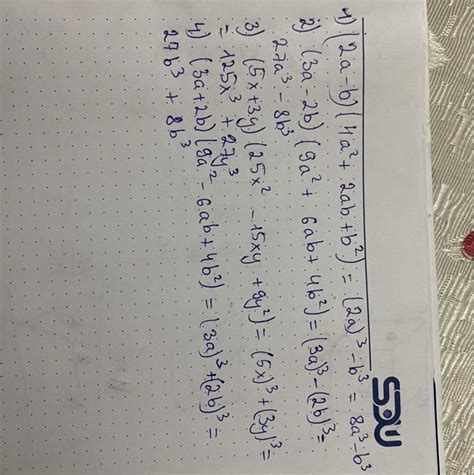 SDU
1) (2a-b)(4a² + 2ab + b²) = (2a)³ - b³ = 8a³ - b³
2) (3a - 2b) (9a² + 6ab + 4b²) = (3a)³ - (2b)³ =
27a³ - 8b³
3) (5x+3y) (25x² - 15xy + 9y²) = (5x)³ + (3y)³ =
= 125x³ + 27y³
4) (3a+2b) (9a² - 6ab + 4b²) = (3a)³ + (2b)³ =
27b³ + 8b³